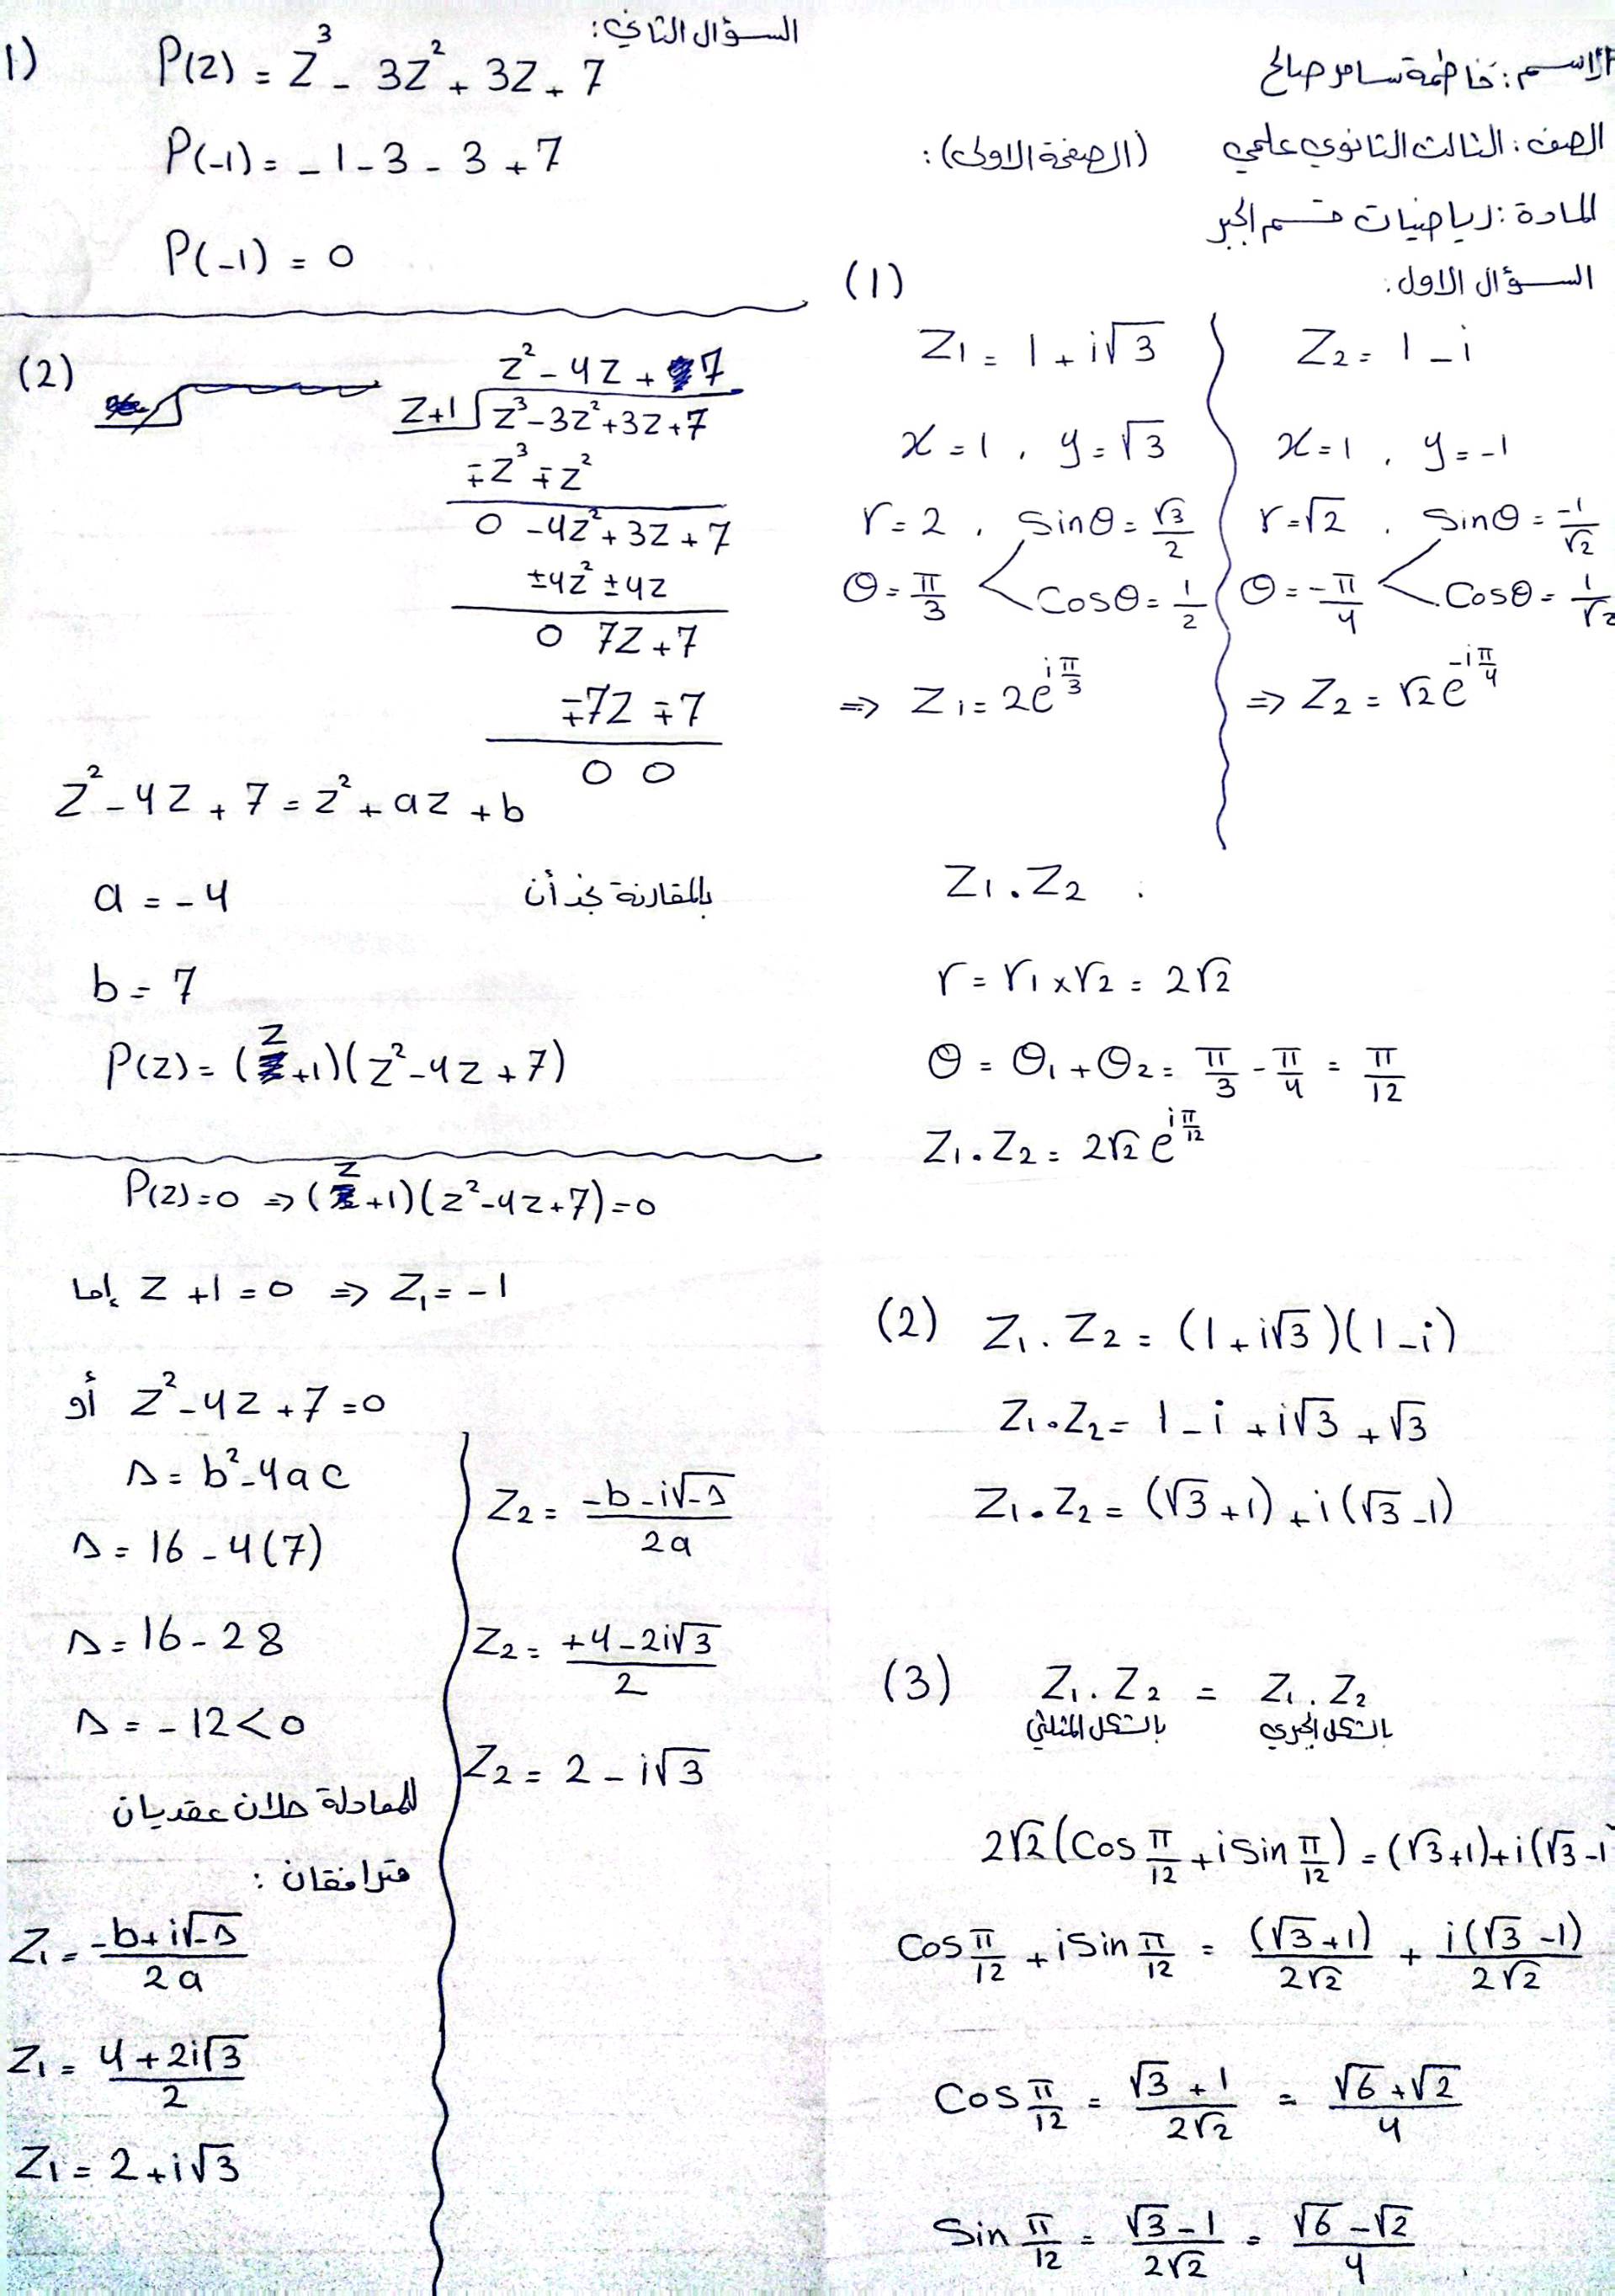 الاسم: فاطمة سامر صالح
الصف: الثالث الثانوي علمي (الصفحة الاولى):
المادة: رياضيات قسم الجبر
السؤال الاول:
(1)
Z₁ = 1 + i√3
x = 1 , y = √3
r = 2 , Sinθ = √3/2
θ = π/3 Cosθ = 1/2
⇒ Z₁ = 2e^(iπ/3)
Z₂ = 1 - i
x = 1 , y = -1
r = √2 , Sinθ = -1/√2
θ = -π/4 Cosθ = 1/√2
⇒ Z₂ = √2e^(-iπ/4)
Z₁ . Z₂ :
r = r₁ × r₂ = 2√2
θ = θ₁ + θ₂ = π/3 - π/4 = π/12
Z₁ . Z₂ = 2√2 e^(iπ/12)
(2) Z₁ . Z₂ = (1 + i√3)(1 - i)
Z₁ . Z₂ = 1 - i + i√3 + √3
Z₁ . Z₂ = (√3 + 1) + i(√3 - 1)
(3) Z₁ . Z₂ = Z₁ . Z₂
بالشكل الجبري بالشكل المثلثي
2√2(Cos π/12 + i Sin π/12) = (√3+1)+i(√3-1)
Cos π/12 + i Sin π/12 = (√3+1)/2√2 + i(√3-1)/2√2
Cos π/12 = (√3+1)/2√2 = (√6+√2)/4
Sin π/12 = (√3-1)/2√2 = (√6-√2)/4
السؤال الثاني:
1) P(z) = Z³ - 3Z² + 3Z + 7
P(-1) = -1 - 3 - 3 + 7
P(-1) = 0
(2)
Z² - 4Z + 7
Z+1 Z³-3Z²+3Z+7
∓Z³ ∓Z²
0 -4Z²+3Z+7
±4Z² ±4Z
0 7Z+7
∓7Z ∓7
0 0
Z² - 4Z + 7 = Z² + aZ + b
بالمقارنة نجد أن
a = -4
b = 7
P(z) = (Z+1)(Z²-4Z+7)
P(z)=0 ⇒ (Z+1)(Z²-4Z+7)=0
إما Z+1=0 ⇒ Z₁=-1
أو Z²-4Z+7=0
Δ = b²-4ac
Δ = 16 - 4(7)
Δ = 16 - 28
Δ = -12 < 0
للمعادلة حلان عقديان
مترافقان :
Z₁ = (-b+i√-Δ)/2a
Z₁ = (4+2i√3)/2
Z₁ = 2+i√3
Z₂ = (-b-i√-Δ)/2a
Z₂ = (+4-2i√3)/2
Z₂ = 2 - i√3